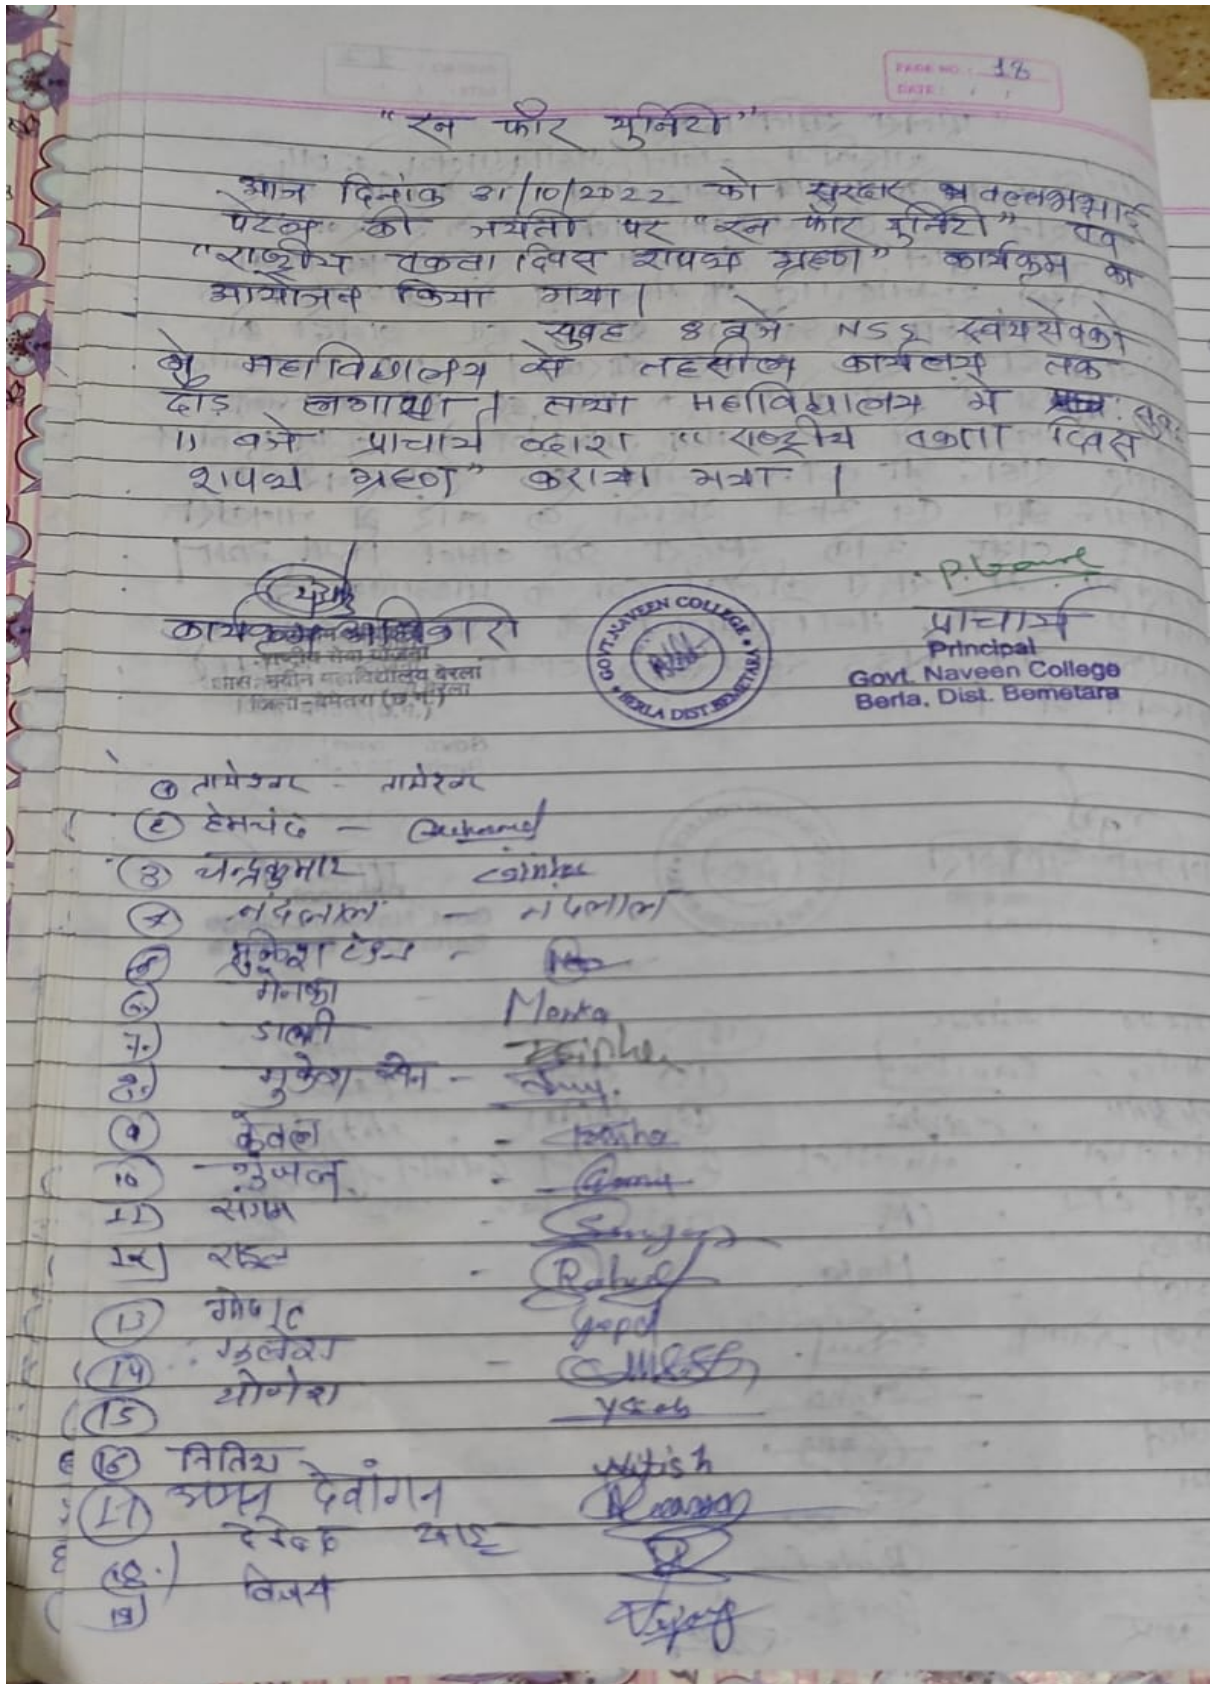 PAGE NO: 18
DATE: / /
"रन फॉर युनिटी"
आज दिनांक 31/10/2022 को सरदार वल्लभभाई
पटेल की जयंती पर "रन फॉर युनिटी" एवं
"राष्ट्रीय एकता दिवस शपथ ग्रहण" कार्यक्रम का
आयोजन किया गया।
सुबह 8 बजे NSS स्वंयसेवको
ने महाविद्यालय से तहसील कार्यलय तक
दौड़ लगाया। तथा महाविद्यालय मे
11 बजे प्राचार्य द्वारा "राष्ट्रीय एकता दिवस
शपथ ग्रहण" कराया गया।
P. Gavel
कार्यक्रम अधिकारी
प्राचार्य
राष्ट्रीय सेवा योजना
शास. नवीन महाविद्यालय बेरला
जिला-बेमेतरा (छ.ग.)
GOVT. NAVEEN COLLEGE
BERLA DIST. BEMETARA
Principal
Govt. Naveen College
Berla, Dist. Bemetara
① तामेश्वर - तामेश्वर
② हेमचंद -
③ चन्द्रकुमार
④ नंदलाल - नंदलाल
⑤ -
6. मेनका Menka
7.) डाली
8.) मुकेश सेन -
⑨ केवल -
10 -
11) संगम - Sangam
12) राहुल - Rahul
13 गोपाल Gopal
14 -
15 योगेश
16 नितिश Nitish
17 देवांगन
18.)
19) विजय Vijay